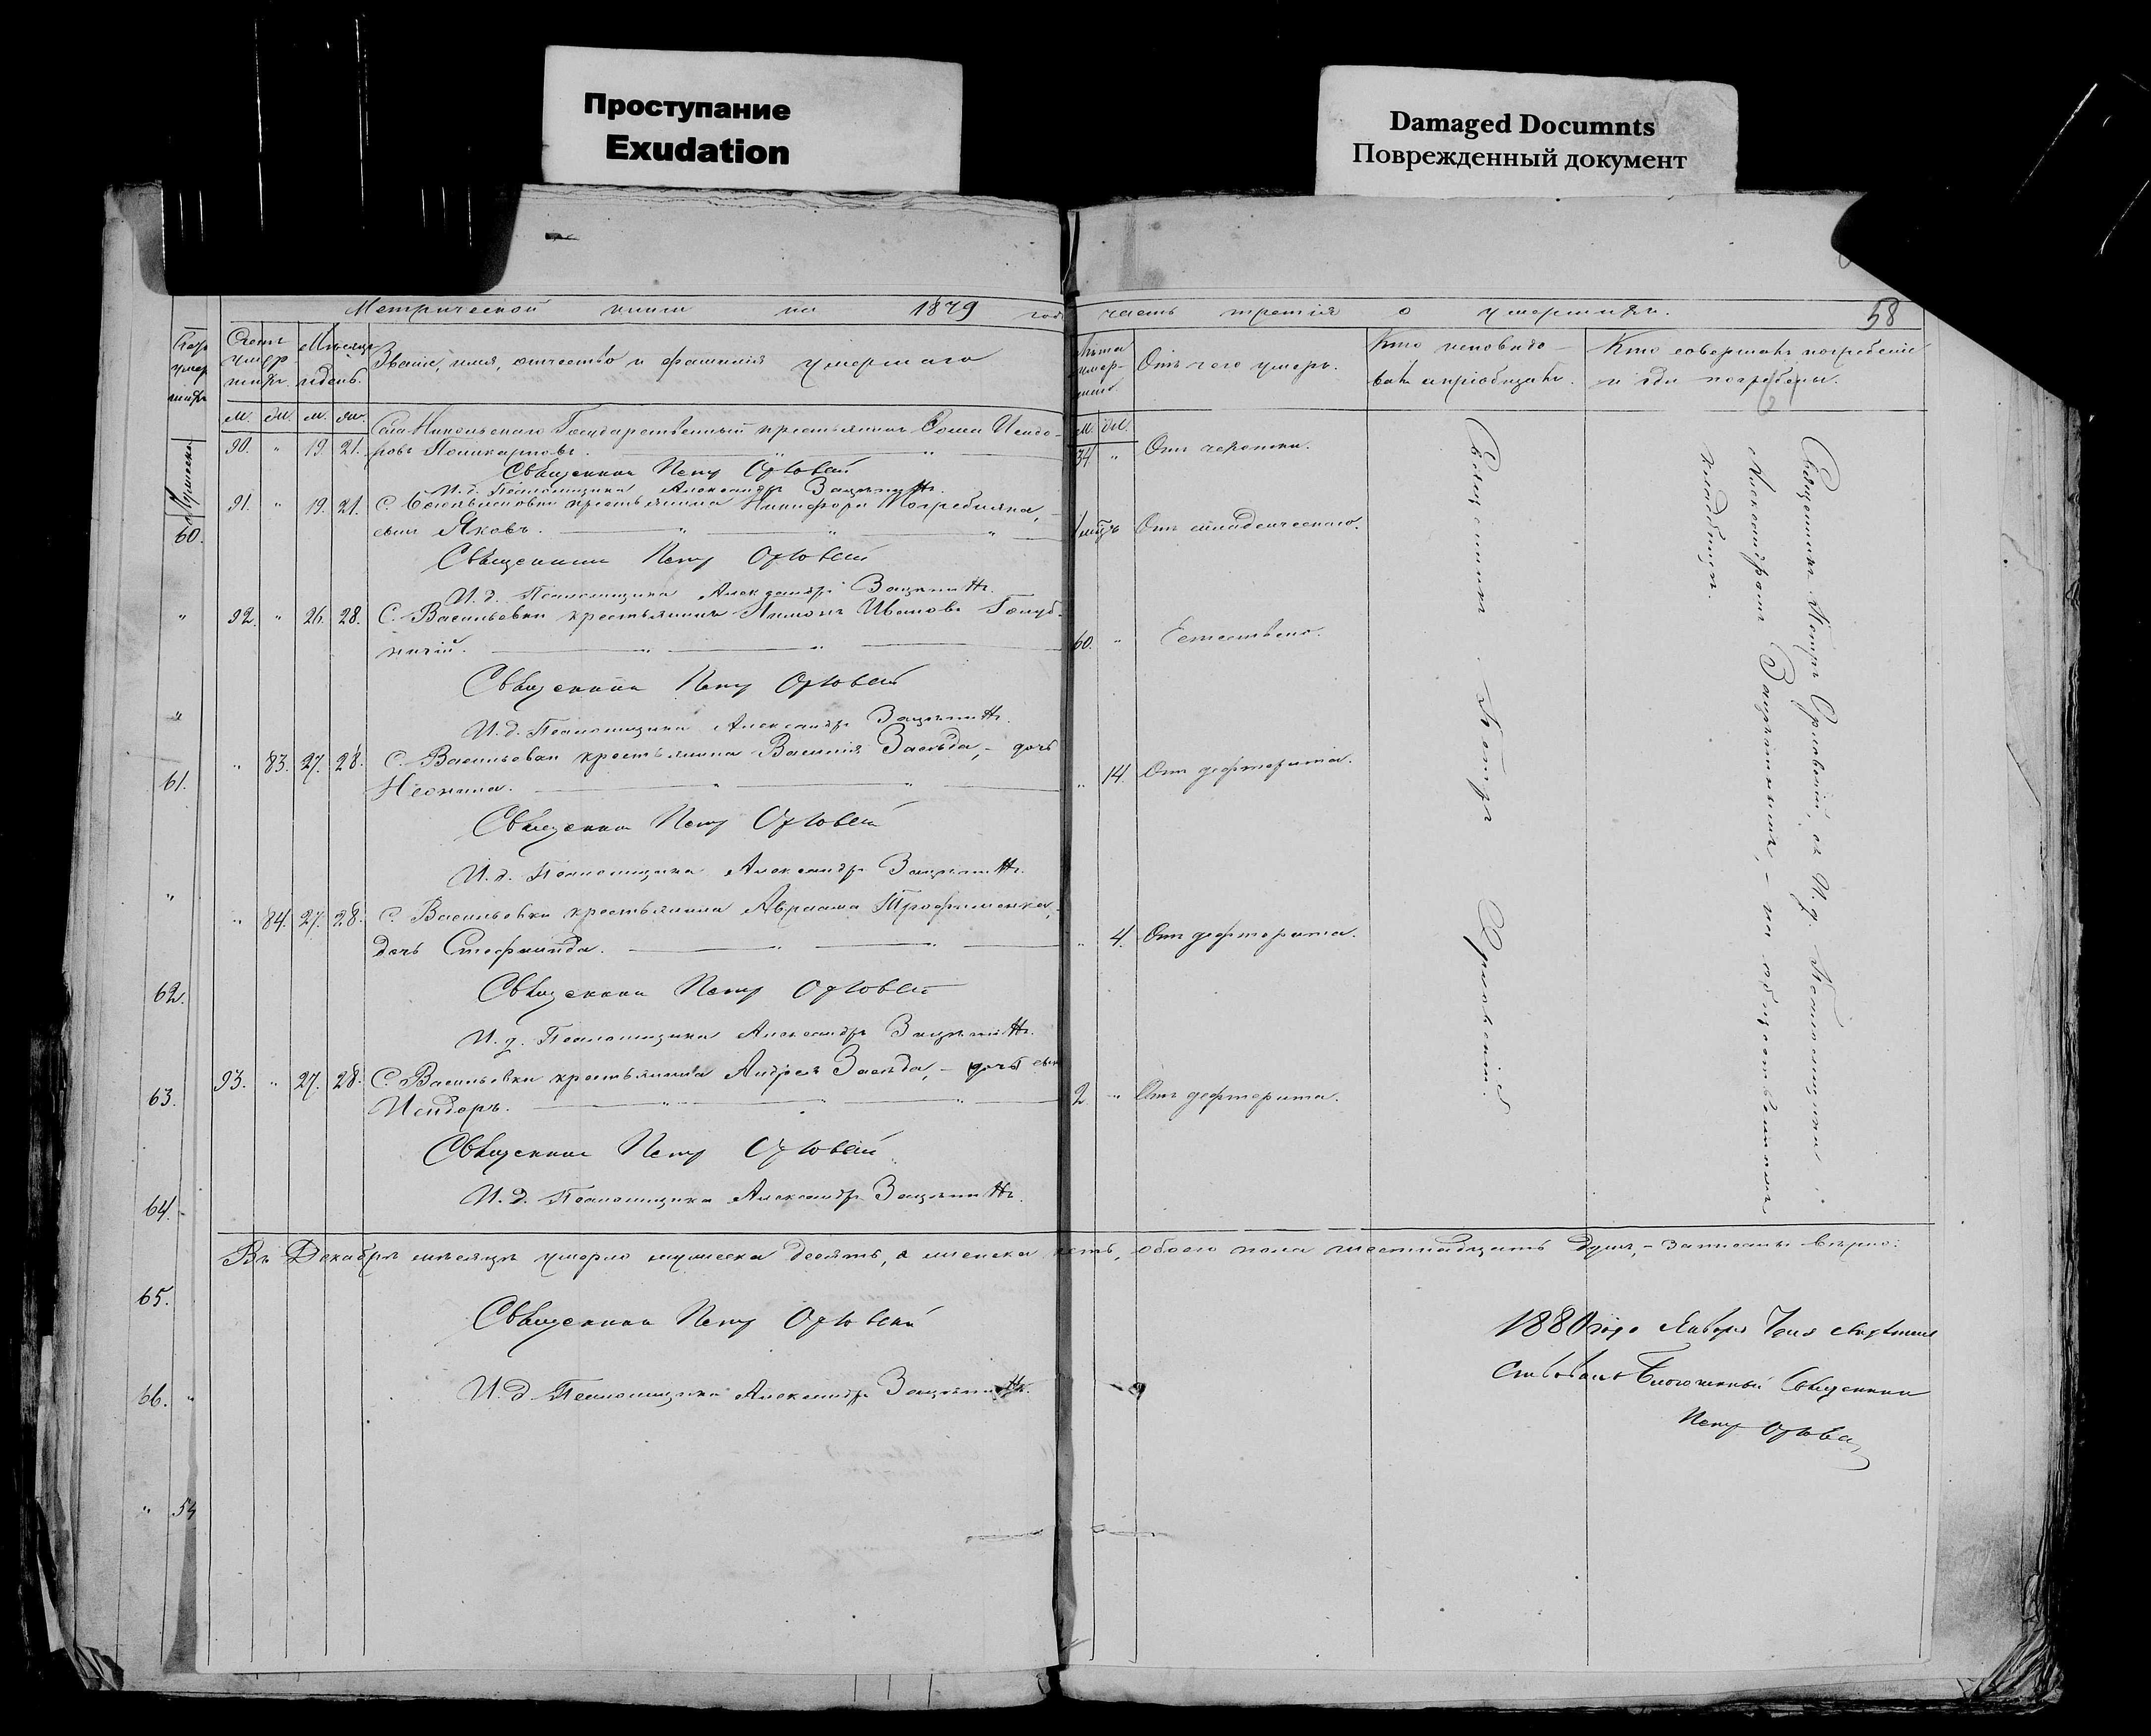 Проступание
Exudation
Damaged Documnts
Поврежденный документ
Метрической книги на 1879 годъ
часть третія о умершихъ.
58
Счетъ умер шихъ.
Мѣсяцъ и день.
Званіе, имя, отчество и фамилія умершаго
Лѣта умершаго.
Отъ чего умеръ.
Кто исповѣдо-
валъ и пріобщалъ.
Кто совершалъ погребеніе
и гдѣ погребены.
м. ж. м. ж.
м. ж.
Села Никольскаго Государственный крестьянинъ Ѳома Исидо-
90. " 19. 21. ровъ Поликарповъ.
34. " Отъ чахотки.
Священникъ Петръ Орловскій
И. д. Псаломщика Александръ
91. " 19. 21. С. крестьянина Никифора Погребняка,
сынъ Яковъ.
Отъ младенческаго.
Священникъ Петръ Орловскій
И. д. Псаломщика Александръ
92. " 26. 28. С. Васильевки крестьянинъ Ивановъ Голуб-
ничій.
60. " Естественно.
Священникъ Петръ Орловскій
И. д. Псаломщика Александръ
" 83. 27. 28. С. Васильевки крестьянина Василія Заезда, – дочь
Неонила.
" 14. Отъ дефтерита.
Священникъ Петръ Орловскій
И. д. Псаломщика Александръ
" 84. 27. 28. С. Васильевки крестьянина Авраама Трофименка,
дочь Стефанида.
" 4. Отъ дефтерита.
Священникъ Петръ Орловскій
И. д. Псаломщика Александръ
93. " 27. 28. С. Васильевки крестьянина Андрея Заезда, – сынъ
Исидоръ.
2 " Отъ дефтерита.
Священникъ Петръ Орловскій
И. д. Псаломщика Александръ
Священникъ Петръ Орловскій
Священникъ Петръ Орловскій, съ И. д. Псаломщика
Александромъ – на общественномъ
кладбищѣ.
Въ Декабрѣ мѣсяцѣ умерло мужеска десять, а женска шесть, обоего пола шестнадцать душъ, – записаны вѣрно:
Священникъ Петръ Орловскій
И. д. Псаломщика Александръ
1880 года Января
Благочинный Священникъ
Петръ Орловскій
60.
61.
62.
63.
64.
65.
66. "
" 54